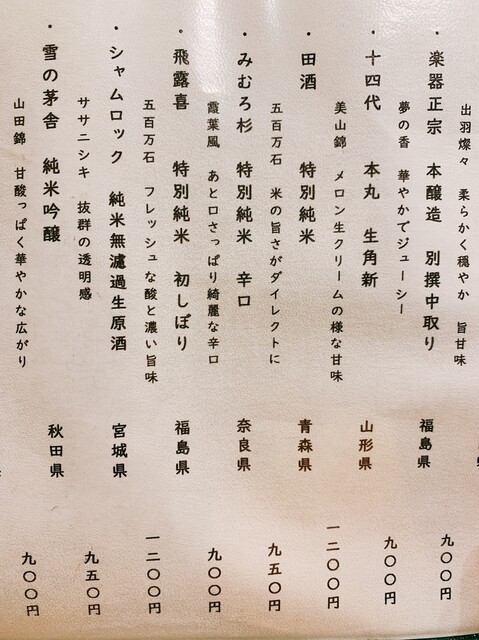 出羽燦々 柔らかく穏やか 旨甘味 九〇〇円
・楽器正宗 本醸造 別撰中取り 福島県
夢の香 華やかでジューシー 九〇〇円
・十四代 本丸 生角新 山形県
美山錦 メロン生クリームの様な甘味 一二〇〇円
・田酒 特別純米 青森県
五百万石 米の旨さがダイレクトに 九五〇円
・みむろ杉 特別純米 辛口 奈良県
霞葉風 あと口さっぱり綺麗な辛口 九〇〇円
・飛露喜 特別純米 初しぼり 福島県
五百万石 フレッシュな酸と濃い旨味 一二〇〇円
・シャムロック 純米無濾過生原酒 宮城県
ササニシキ 抜群の透明感 九五〇円
・雪の茅舎 純米吟醸 秋田県
山田錦 甘酸っぱく華やかな広がり 九〇〇円